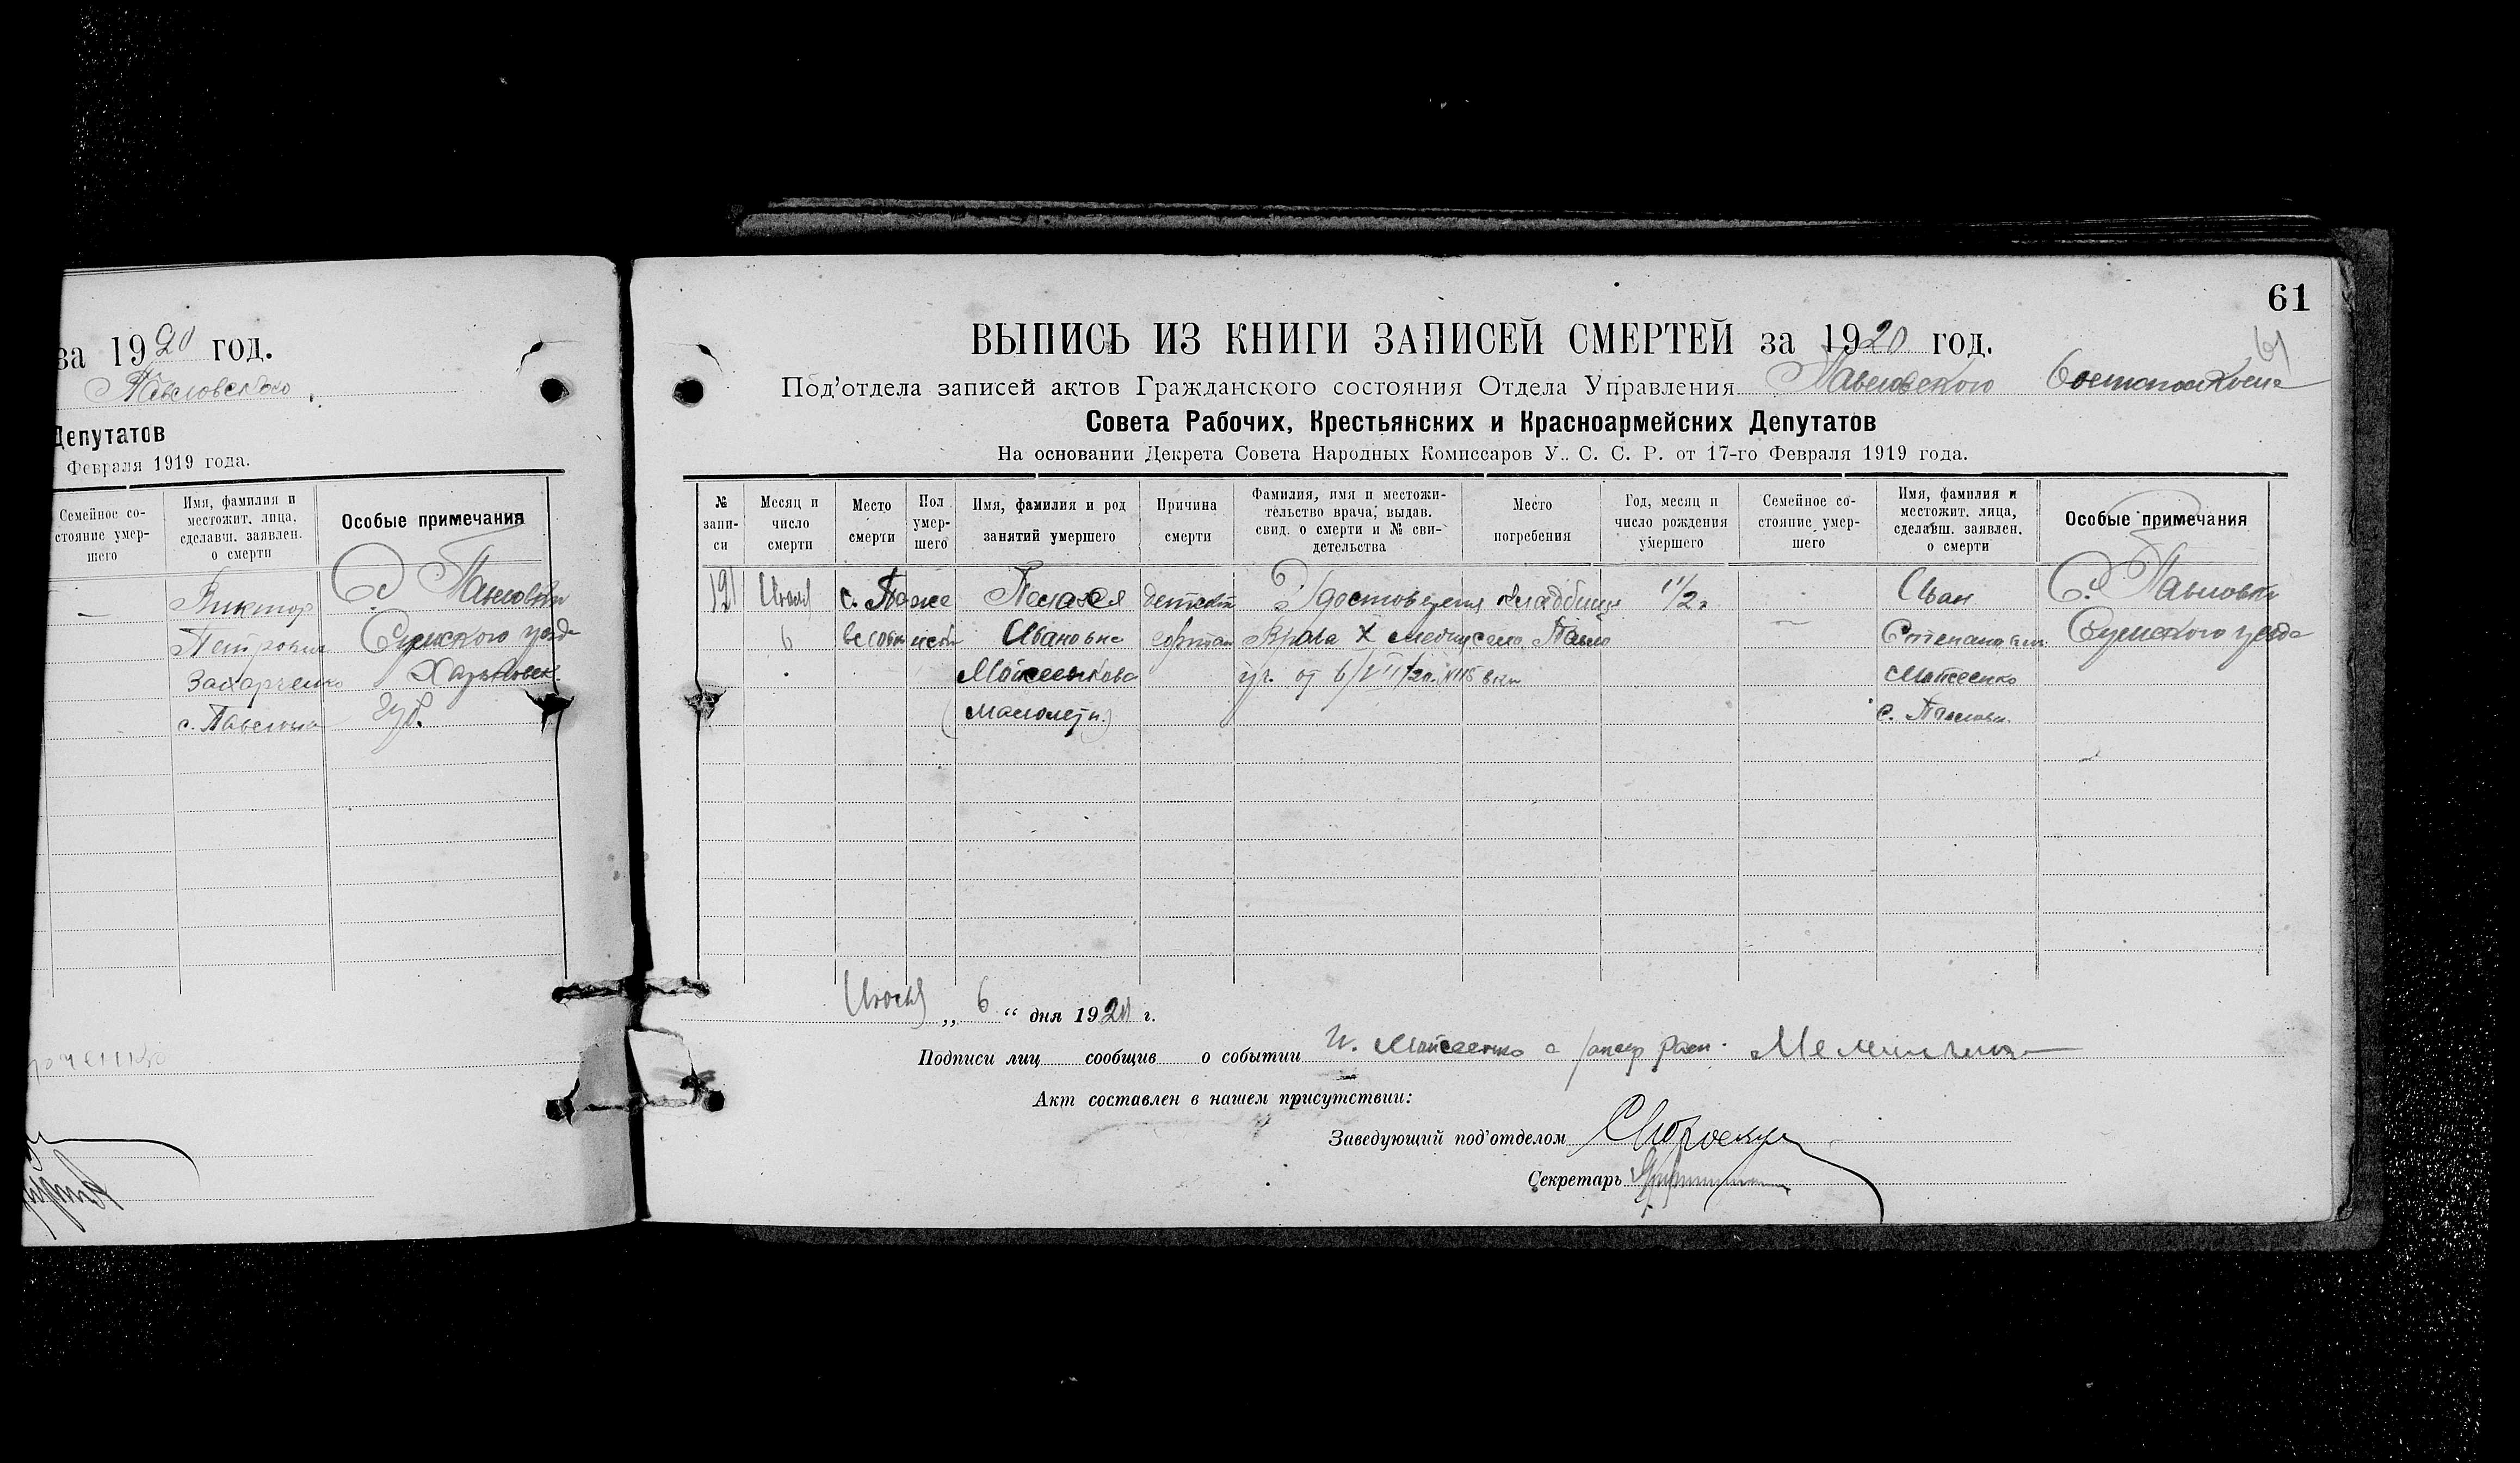 за 1920 год.
Павловского
Депутатов
Февраля 1919 года.
Семейное со-
стояние умер-
шего
Имя, фамилия и
местожит. лица,
сделавш. заявлен.
о смерти
Особые примечания
—
Виктор
Петрович
Захарченко
с. Павловка
С. Павловки
Сумского уезда
Харьковск.
Губ.
61
61
ВЫПИСЬ ИЗ КНИГИ ЗАПИСЕЙ СМЕРТЕЙ за 1920 год.
Под'отдела записей актов Гражданского состояния Отдела Управления Павловского
Совета Рабочих, Крестьянских и Красноармейских Депутатов
На основании Декрета Совета Народных Комиссаров У. С. С. Р. от 17-го Февраля 1919 года.
№
запи-
си
Месяц и
число
смерти
Место
смерти
Пол
умер-
шего
Имя, фамилия и род
занятий умершего
Причина
смерти
Фамилия, имя и местожи-
тельство врача, выдав.
свид. о смерти и № сви-
детельства
Место
погребения
Год, месяц и
число рождения
умершего
Семейное со-
стояние умер-
шего
Имя, фамилия и
местожит. лица,
сделавш. заявлен.
о смерти
Особые примечания
121
Июля
6
с. Пав
Пелагея
Ивановна
Моисеенкова
(малолетн.)
Врача
от 6/VII
кладбище
села Павло
1 1/2 г
Иван
Степанович
Моисеенко
с. Павловки
С. Павловки
Сумского уезда
Июля „ 6 “ дня 1920 г.
Подписи лиц сообщив о событии И. Моисеенко
Акт составлен в нашем присутствии:
Заведующий под'отделом
Секретарь